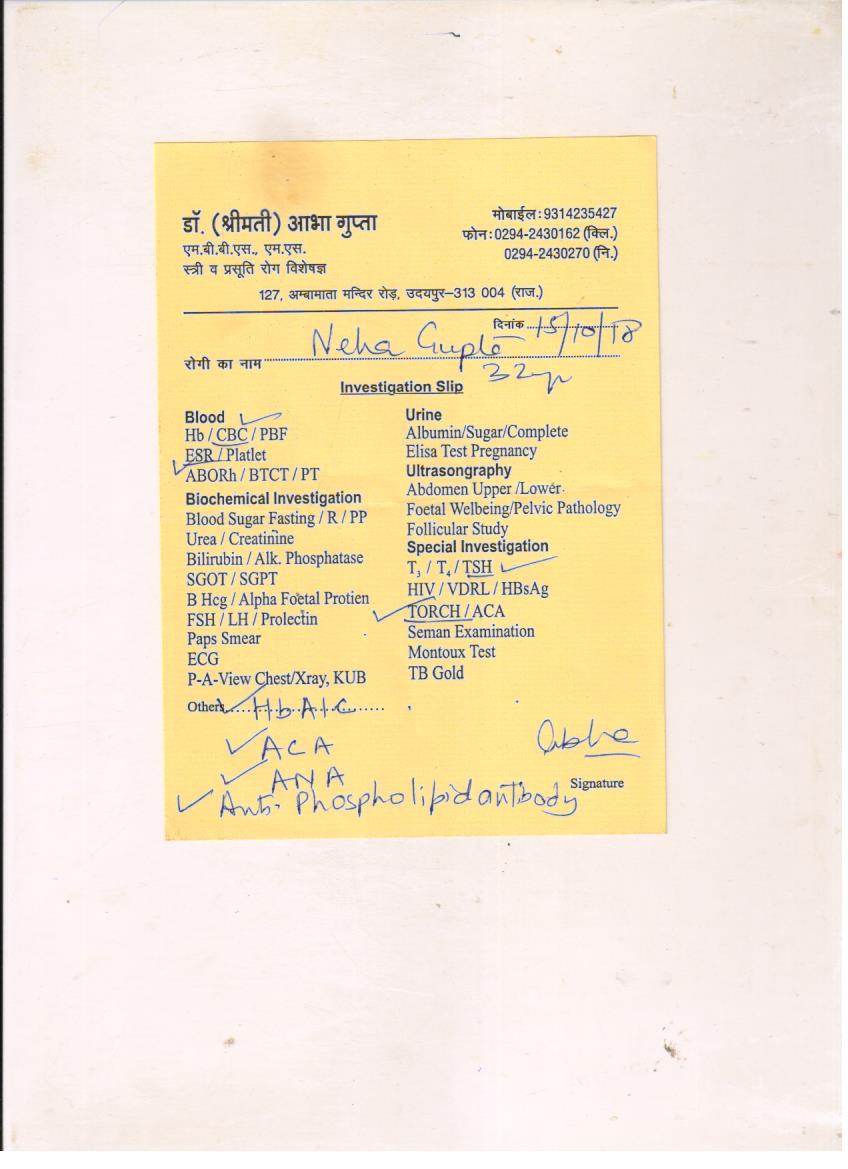 डॉ. (श्रीमती) आभा गुप्ता
एम.बी.बी.एस., एम.एस.
स्त्री व प्रसूति रोग विशेषज्ञ
मोबाईल:9314235427
फोन:0294-2430162 (क्लि.)
0294-2430270 (नि.)
127, अम्बामाता मन्दिर रोड़, उदयपुर–313 004 (राज.)
दिनांक 15/10/18
रोगी का नाम Neha Gupta
32yr
Investigation Slip
Blood
Hb / CBC / PBF
ESR / Platlet
ABORh / BTCT / PT
Biochemical Investigation
Blood Sugar Fasting / R / PP
Urea / Creatinine
Bilirubin / Alk. Phosphatase
SGOT / SGPT
B Hcg / Alpha Foetal Protien
FSH / LH / Prolectin
Paps Smear
ECG
P-A-View Chest/Xray, KUB
Others HbA1C
ACA
ANA
Anti-Phospholipid antibody
Urine
Albumin/Sugar/Complete
Elisa Test Pregnancy
Ultrasongraphy
Abdomen Upper /Lower
Foetal Welbeing/Pelvic Pathology
Follicular Study
Special Investigation
T₃ / T₄ / TSH
HIV / VDRL / HBsAg
TORCH / ACA
Seman Examination
Montoux Test
TB Gold
Abha
Signature